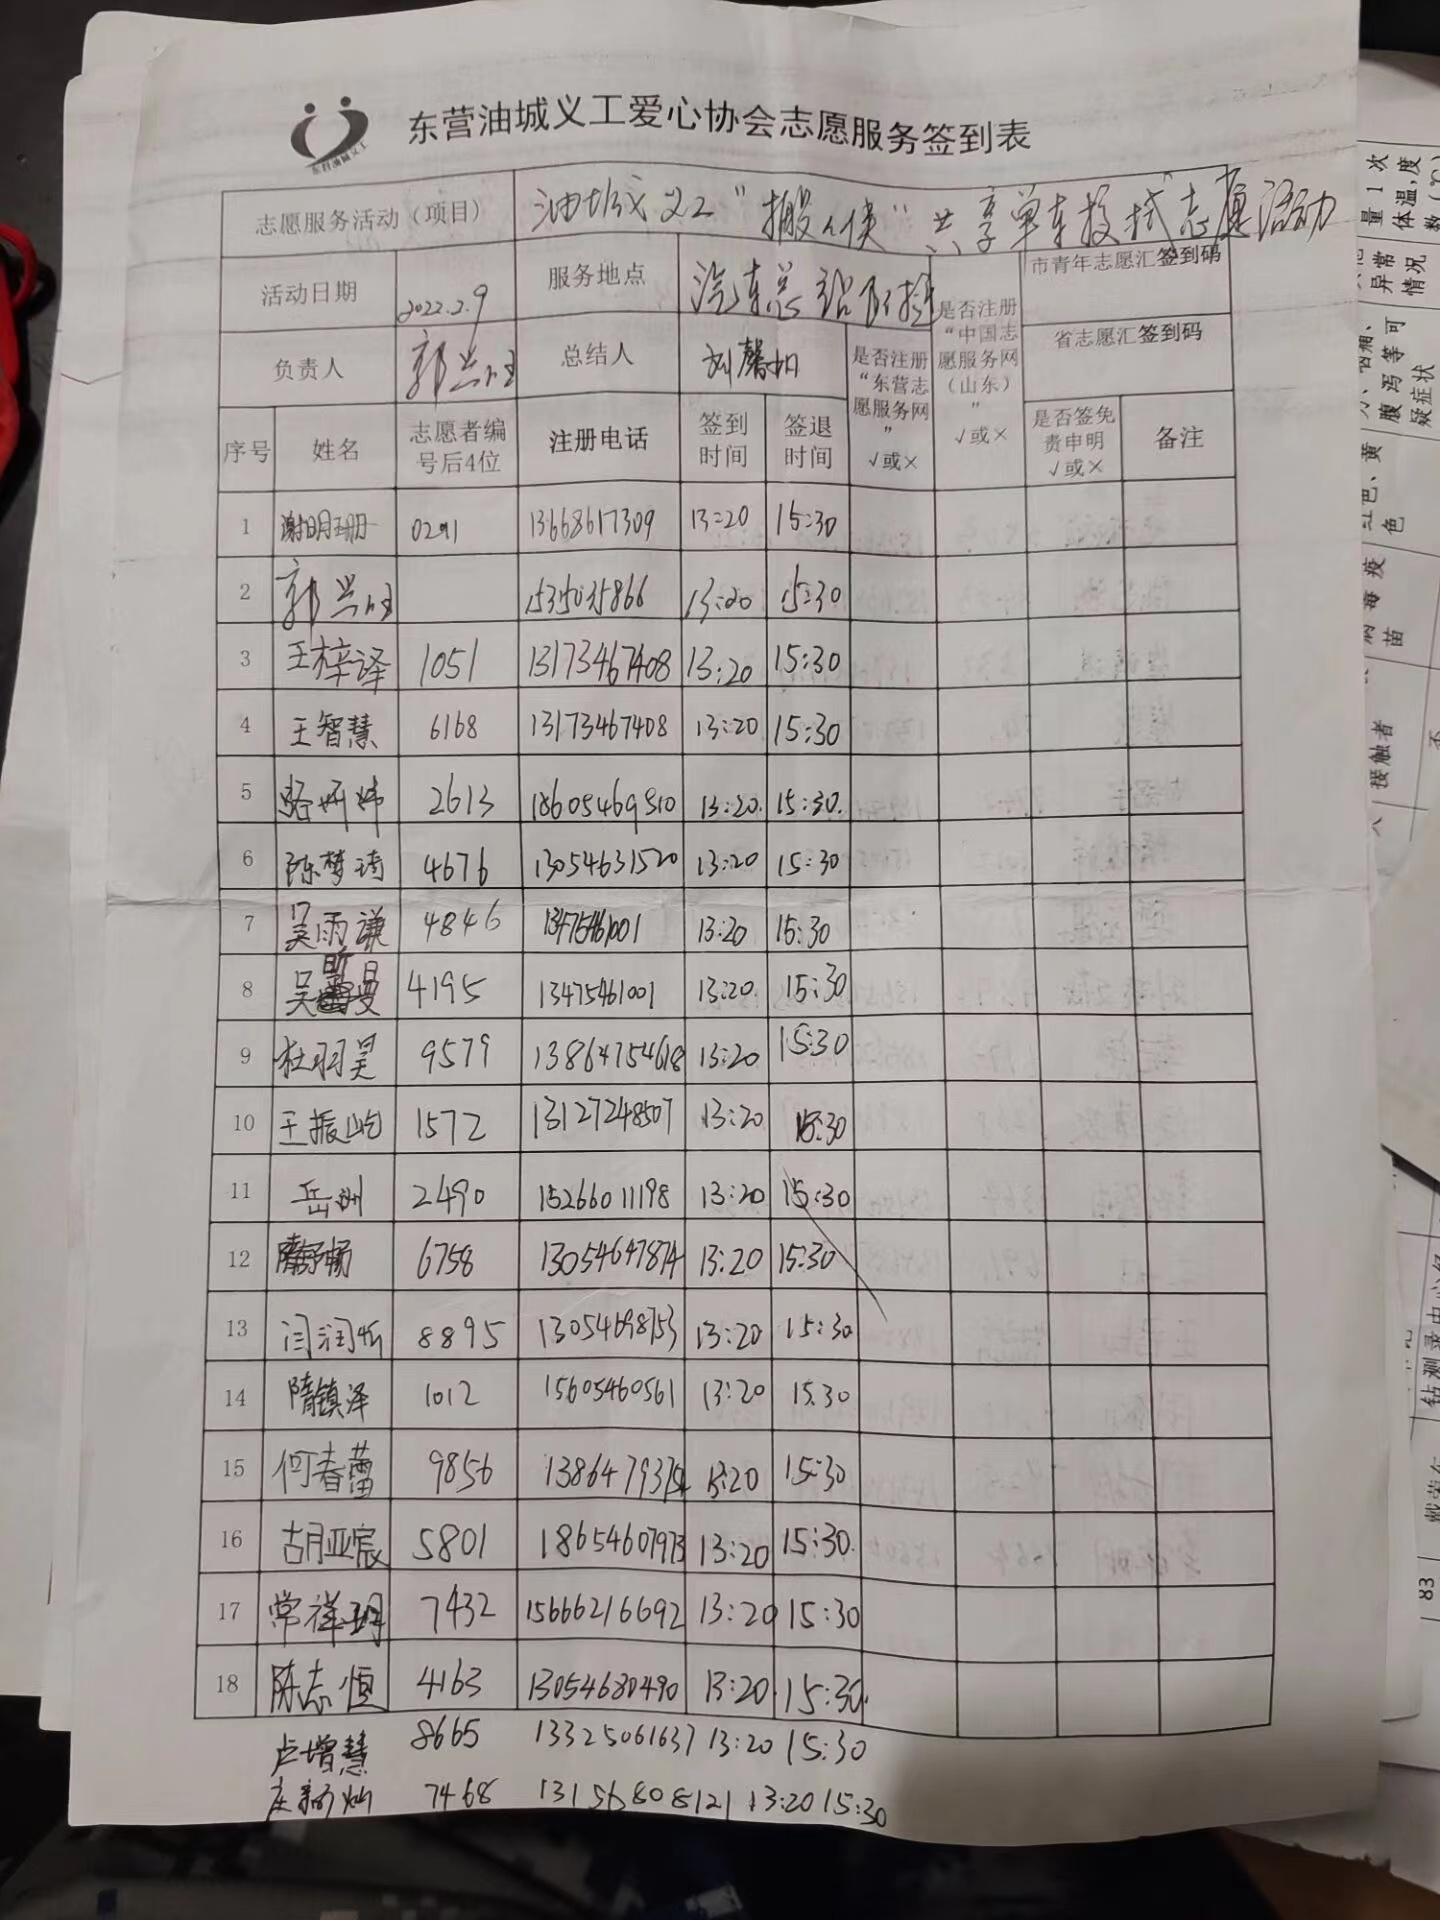 东营油城义工
东营油城义工爱心协会志愿服务签到表
志愿服务活动（项目） 油城义工"搬人侠"共享单车投拭志愿活动
活动日期 2022.2.9 服务地点 汽车总站附近 是否注册“中国志愿服务网（山东）” √或× 市青年志愿汇签到码
负责人 郭兴旺 总结人 刘馨如 是否注册“东营志愿服务网” √或× 省志愿汇签到码
序号 姓名 志愿者编号后4位 注册电话 签到时间 签退时间 是否签免责申明 √或× 备注
1 谢明珊 0291 13668617309 13:20 15:30
2 郭兴旺 15315035866 13:20 15:30
3 王梓译 1051 13173467408 13:20 15:30
4 王智慧 6168 13173467408 13:20 15:30
5 骆妍炜 2613 18605469510 13:20. 15:30.
6 陈梦琦 4676 13054631520 13:20 15:30
7 吴雨谦 4846 13475461001 13:20 15:30
8 吴昕曼 4195 13475461001 13:20 15:30
9 杜羽昊 9579 13864754618 13:20 15:30
10 王振屹 1572 13127248507 13:20 15:30
11 岳洲 2490 15266011198 13:20 15:30
12 隋舒畅 6758 13054647874 13:20 15:30
13 闫润忻 8895 13054698753 13:20 15:30
14 隋镇泽 1012 15605460561 13:20 15:30
15 何春蕾 9856 13864793754 13:20 15:30
16 胡亚宸 5801 18654607973 13:20 15:30.
17 常祥玥 7432 15666216692 13:20 15:30
18 陈志恒 4163 13054680490 13:20. 15:30.
卢增慧 8665 13325061637 13:20 15:30
庄新灿 7468 13156808121 13:20 15:30
量1次体温，度数（℃）
异常情况
腹泻等可疑症状
接触者
83